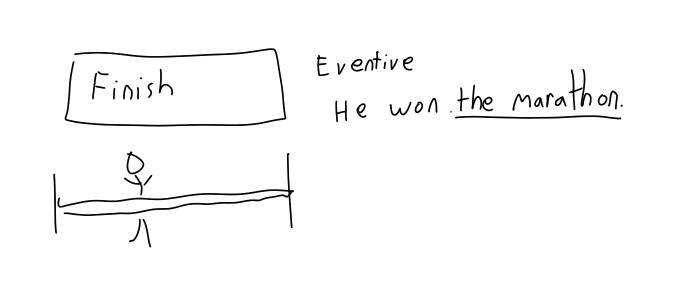 Finish
Eventive
He won the marathon.